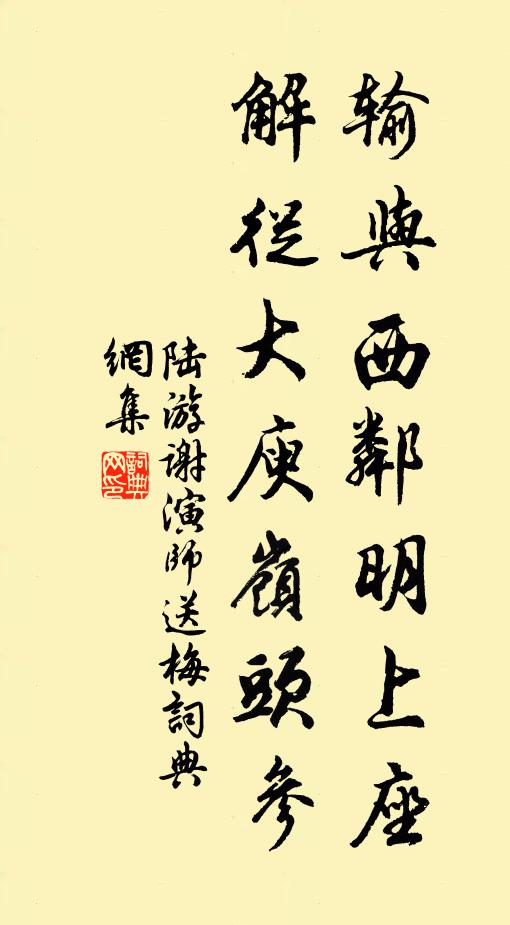 输與西鄰明上座
解從大庾嶺頭參
陆游谢演師送梅詞典
網集
詞典网印